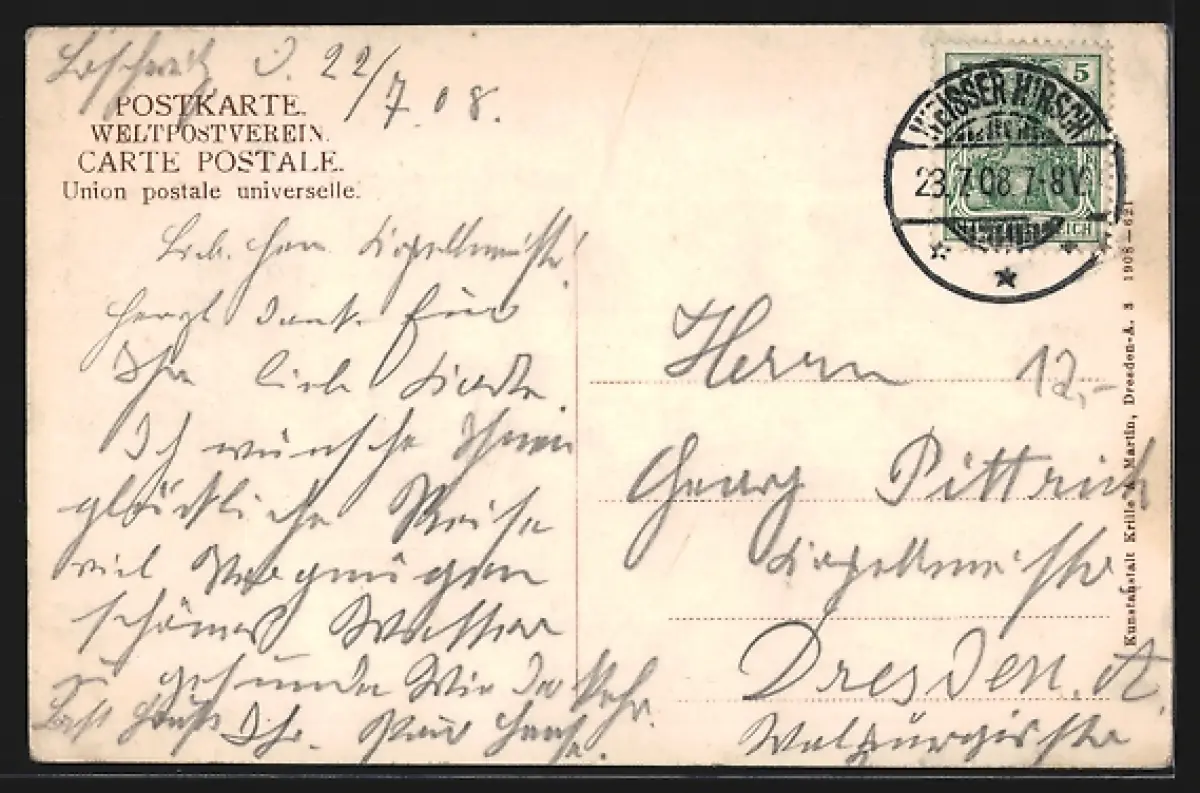 Loschwitz d. 22/7.08.
POSTKARTE.
WELTPOSTVEREIN.
CARTE POSTALE.
Union postale universelle.
5
WEISSER HIRSCH
23.7.08.7-8V.
Lieb. Herr Kapellmeister!
Herzl Dank für
Ihre liebe Karte.
Ich wünsche Ihnen
glückliche Reise
viel Vergnügen
schönes Wetter
u gesunde Wiederkehr.
Ihr. Paul
Herrn
12,-
Georg Pittrich
Kapellmeister
Dresden. A.
Walpurgisstr
Kunstanstalt Krille & Martin, Dresden-A. 3 1908—621